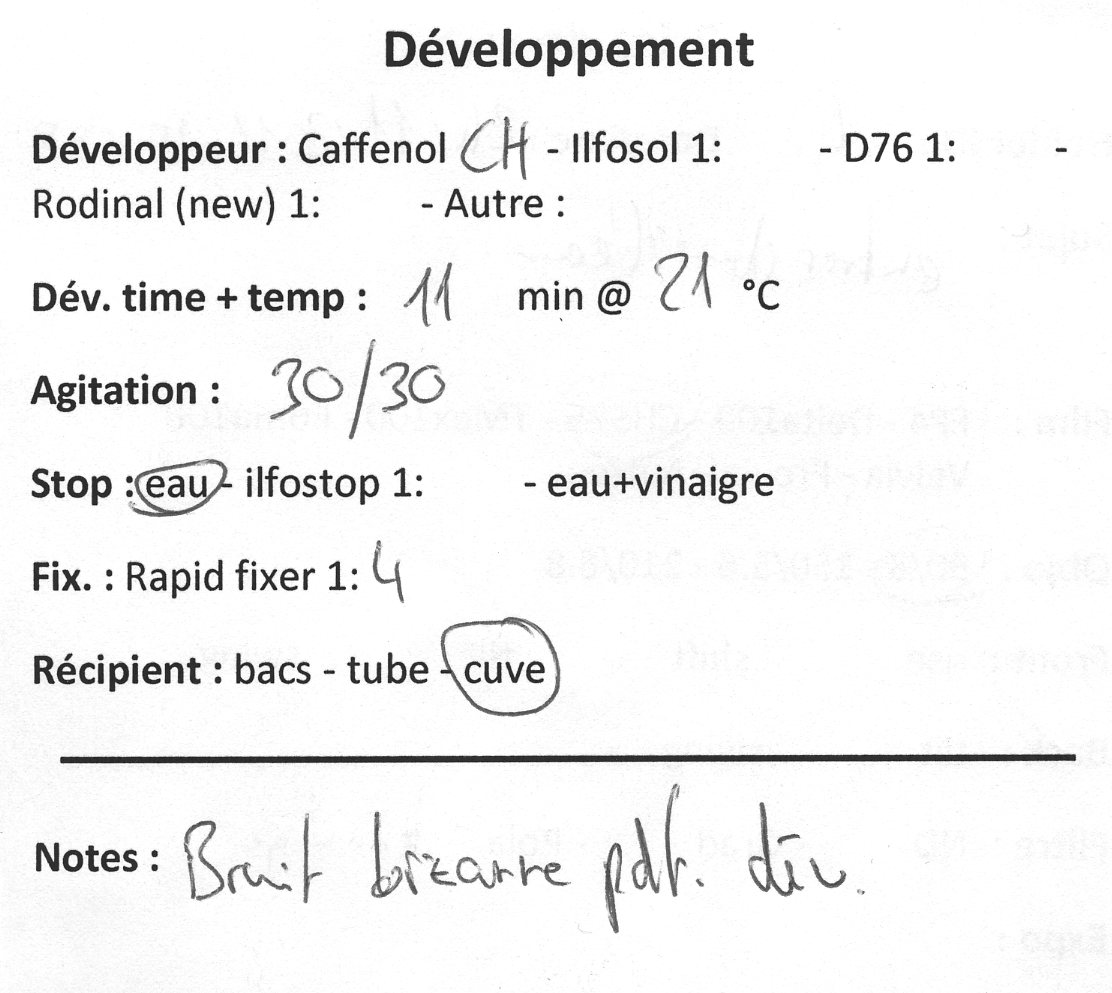 Développement
Développeur : Caffenol CH - Ilfosol 1: - D76 1: -
Rodinal (new) 1: - Autre :
Dév. time + temp : 11 min @ 21 °C
Agitation : 30/30
Stop : eau - ilfostop 1: - eau+vinaigre
Fix. : Rapid fixer 1: 4
Récipient : bacs - tube - cuve
Notes : Bruit bizarre pdt. dév.